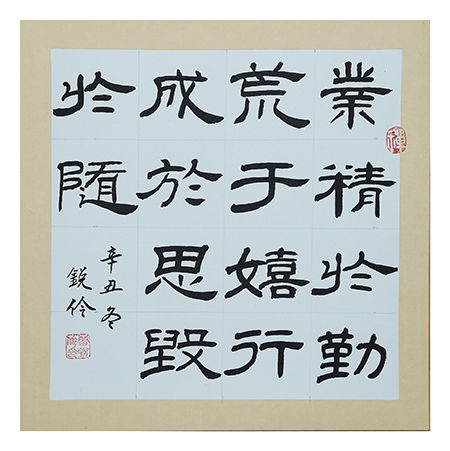 業精於勤
荒于嬉行
成於思毀
於随
辛丑冬
銳伶